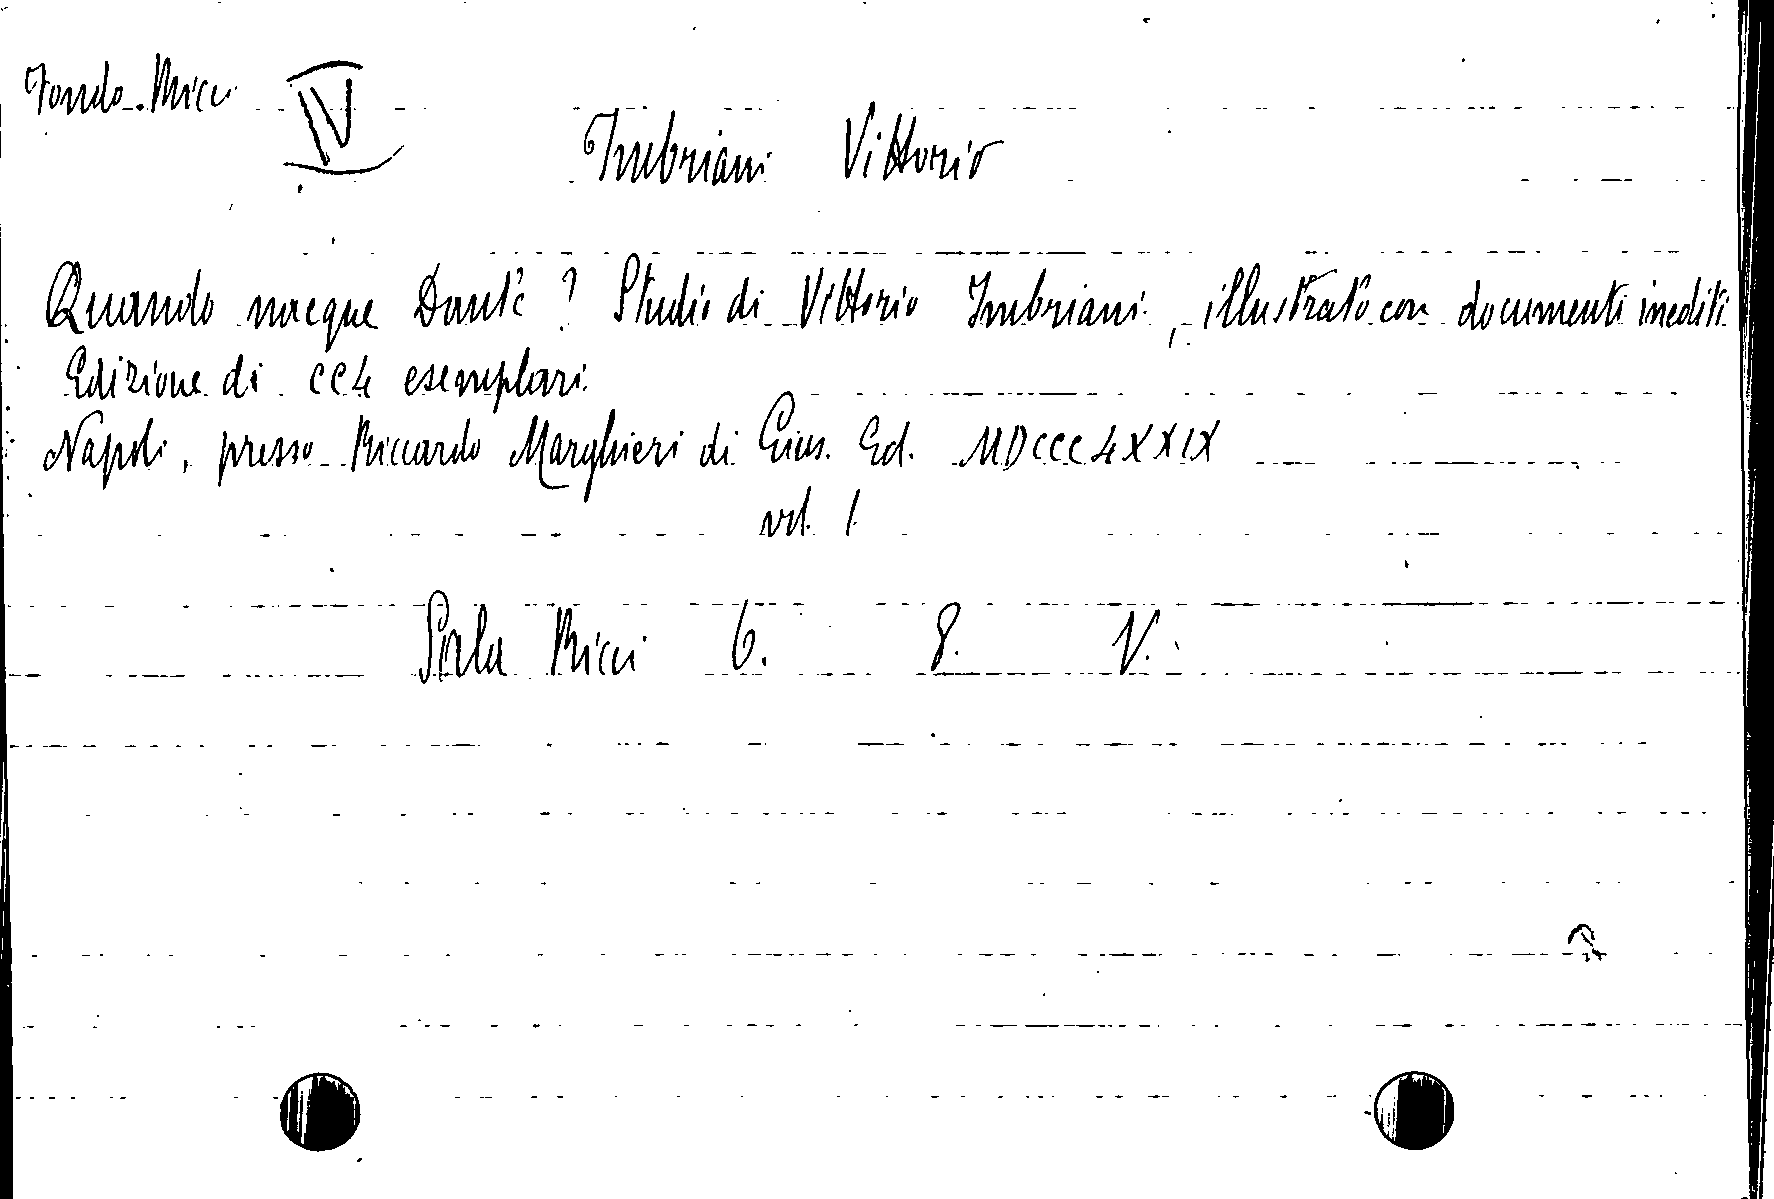 Fondo Ricci IV
Imbriani Vittorio
Quando nacque Dante? Studio di Vittorio Imbriani, illustrato con documenti inediti
Edizione di CCL esemplari
Napoli, presso Riccardo Marghieri di Gius. Ed. MDCCCLXXIX
vol. 1
Sala Ricci 6. 8. V.